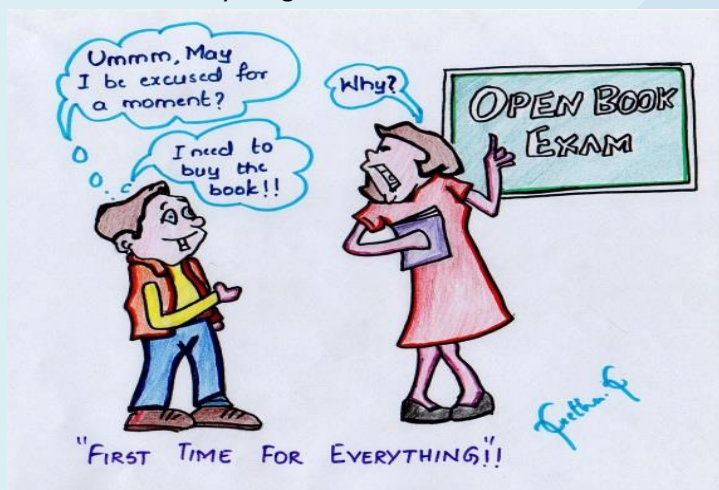 Ummm, May
I be excused for
a moment?
Why?
I need to
buy the
book!!
OPEN BOOK
EXAM
"FIRST TIME FOR EVERYTHING"!!